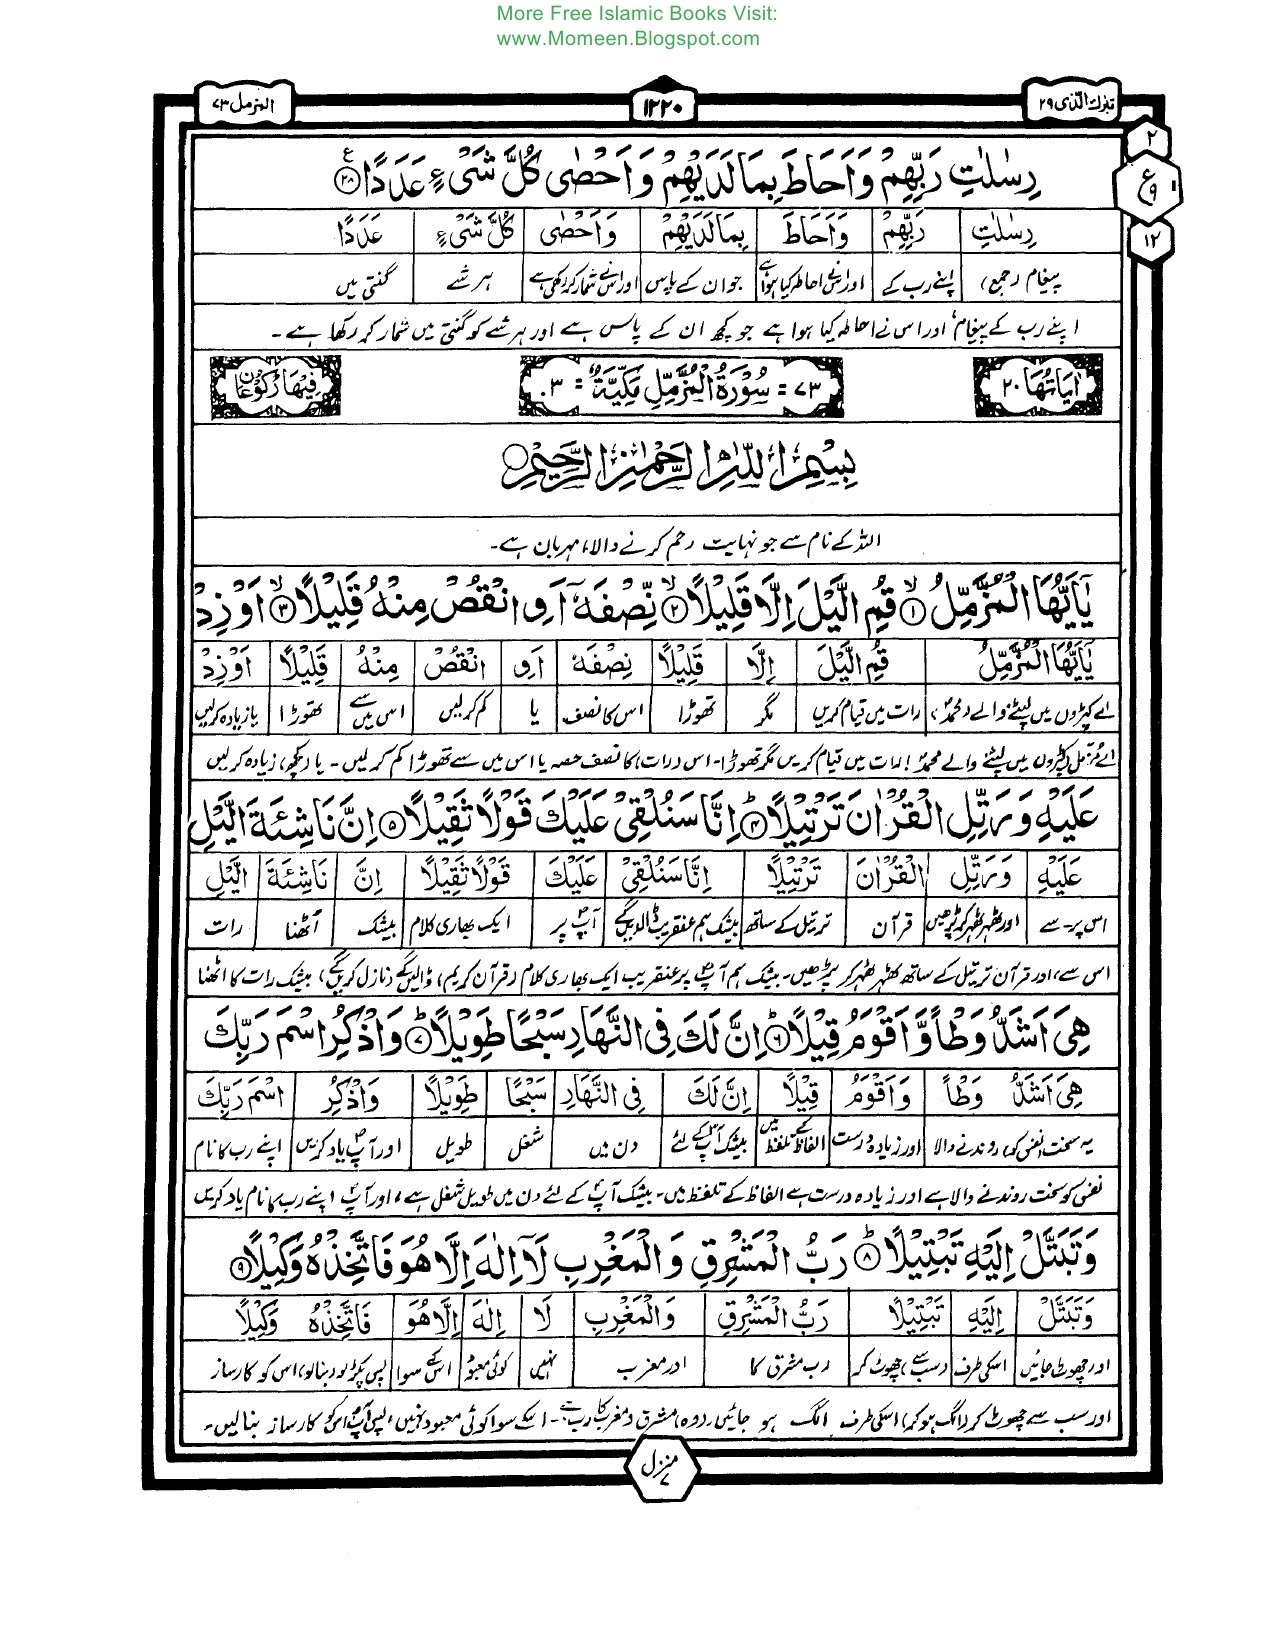 More Free Islamic Books Visit:
www.Momeen.Blogspot.com
تبٰرك الّذى ۲۹
۱۲۲۰
المزمل ۷۳
۲
ع ۹
۱۲
رِسٰلٰتِ رَبِّهِمْ وَاَحَاطَ بِمَا لَدَيْهِمْ وَاَحْصٰى كُلَّ شَىْءٍ عَدَدًا ۲۸
رِسٰلٰتِ رَبِّهِمْ وَاَحَاطَ بِمَا لَدَيْهِمْ وَاَحْصٰى كُلَّ شَىْءٍ عَدَدًا
پیغام (جمع) اپنے رب کے اور اس نے احاطہ کیا ہوا ہے جو ان کے پاس اور اس نے شمار کر رکھی ہے ہر شے گنتی میں
اپنے رب کے پیغام، اور اس نے احاطہ کیا ہوا ہے جو کچھ ان کے پاس ہے اور ہر شے کو گنتی میں شمار کر رکھا ہے۔
اٰيَاتُهَا ۲۰ ۷۳ = سُوْرَةُ الْمُزَّمِّلِ مَكِّيَّةٌ = ۳ فِيْهَا رُكُوْعَانِ
بِسْمِ اللّٰهِ الرَّحْمٰنِ الرَّحِيْمِ
اللہ کے نام سے جو نہایت رحم کرنے والا، مہربان ہے۔
يٰۤاَيُّهَا الْمُزَّمِّلُ ۱ قُمِ الَّيْلَ اِلَّا قَلِيْلًا ۲ نِّصْفَهٗۤ اَوِ انْقُصْ مِنْهُ قَلِيْلًا ۳ اَوْ زِدْ
يٰۤاَيُّهَا الْمُزَّمِّلُ قُمِ الَّيْلَ اِلَّا قَلِيْلًا نِصْفَهٗ اَوِ انْقُصْ مِنْهُ قَلِيْلًا اَوْ زِدْ
اے کپڑوں میں لپٹنے والے (محمدؐ) رات میں قیام کریں مگر تھوڑا اس کا نصف یا کم کر لیں اس میں سے تھوڑا یا زیادہ کر لیں
اے مزمل (کپڑوں میں لپٹنے والے محمدؐ)! رات میں قیام کریں مگر تھوڑا۔ اس (رات) کا نصف حصہ یا اس میں سے تھوڑا کم کر لیں۔ یا (کچھ) زیادہ کر لیں
عَلَيْهِ وَرَتِّلِ الْقُرْاٰنَ تَرْتِيْلًا ۴ اِنَّا سَنُلْقِىْ عَلَيْكَ قَوْلًا ثَقِيْلًا ۵ اِنَّ نَاشِئَةَ الَّيْلِ
عَلَيْهِ وَرَتِّلِ الْقُرْاٰنَ تَرْتِيْلًا اِنَّا سَنُلْقِىْ عَلَيْكَ قَوْلًا ثَقِيْلًا اِنَّ نَاشِئَةَ الَّيْلِ
اس پر۔ سے اور ٹھہر ٹھہر کر پڑھیں قرآن ترتیل کے ساتھ بیشک ہم عنقریب ڈالیں گے آپؐ پر ایک بھاری کلام بیشک اُٹھنا رات
اس سے، اور قرآن ترتیل کے ساتھ ٹھہر ٹھہر کر پڑھیں۔ بیشک ہم آپؐ پر عنقریب ایک بھاری کلام (قرآن کریم) ڈالیں گے (نازل کریں گے)، بیشک رات کا اٹھنا
هِىَ اَشَدُّ وَطْاً وَّاَقْوَمُ قِيْلًا ۶ اِنَّ لَكَ فِى النَّهَارِ سَبْحًا طَوِيْلًا ۷ وَاذْكُرِ اسْمَ رَبِّكَ
هِىَ اَشَدُّ وَطْاً وَاَقْوَمُ قِيْلًا اِنَّ لَكَ فِى النَّهَارِ سَبْحًا طَوِيْلًا وَاذْكُرِ اسْمَ رَبِّكَ
یہ سخت (نفس کو) روندنے والا اور زیادہ درست الفاظ کے تلفظ میں بیشک آپؐ کے لئے دن میں شغل طویل اور آپؐ یاد کریں اپنے رب کا نام
نفس کو سخت روندنے والا ہے اور زیادہ درست ہے الفاظ کے تلفظ میں۔ بیشک آپؐ کے لئے دن میں طویل شغل ہے، اور آپؐ اپنے رب کا نام یاد کریں
وَتَبَتَّلْ اِلَيْهِ تَبْتِيْلًا ۸ رَبُّ الْمَشْرِقِ وَالْمَغْرِبِ لَاۤ اِلٰهَ اِلَّا هُوَ فَاتَّخِذْهُ وَكِيْلًا ۹
وَتَبَتَّلْ اِلَيْهِ تَبْتِيْلًا رَبُّ الْمَشْرِقِ وَالْمَغْرِبِ لَا اِلٰهَ اِلَّا هُوَ فَاتَّخِذْهُ وَكِيْلًا
اور چھوٹ جائیں اسکی طرف (سب سے) چھوٹ کر رب مشرق کا اور مغرب نہیں کوئی معبود اس کے سوا پس پکڑ لو (بنالو) اس کو کارساز
اور سب سے چھوٹ کر (الگ ہو کر) اسکی طرف الگ ہو جائیں۔ (وہ) مشرق و مغرب کا رب ہے۔ اسکے سوا کوئی معبود نہیں، پس آپؐ اس کو کارساز بنالیں۔
منزل ۷